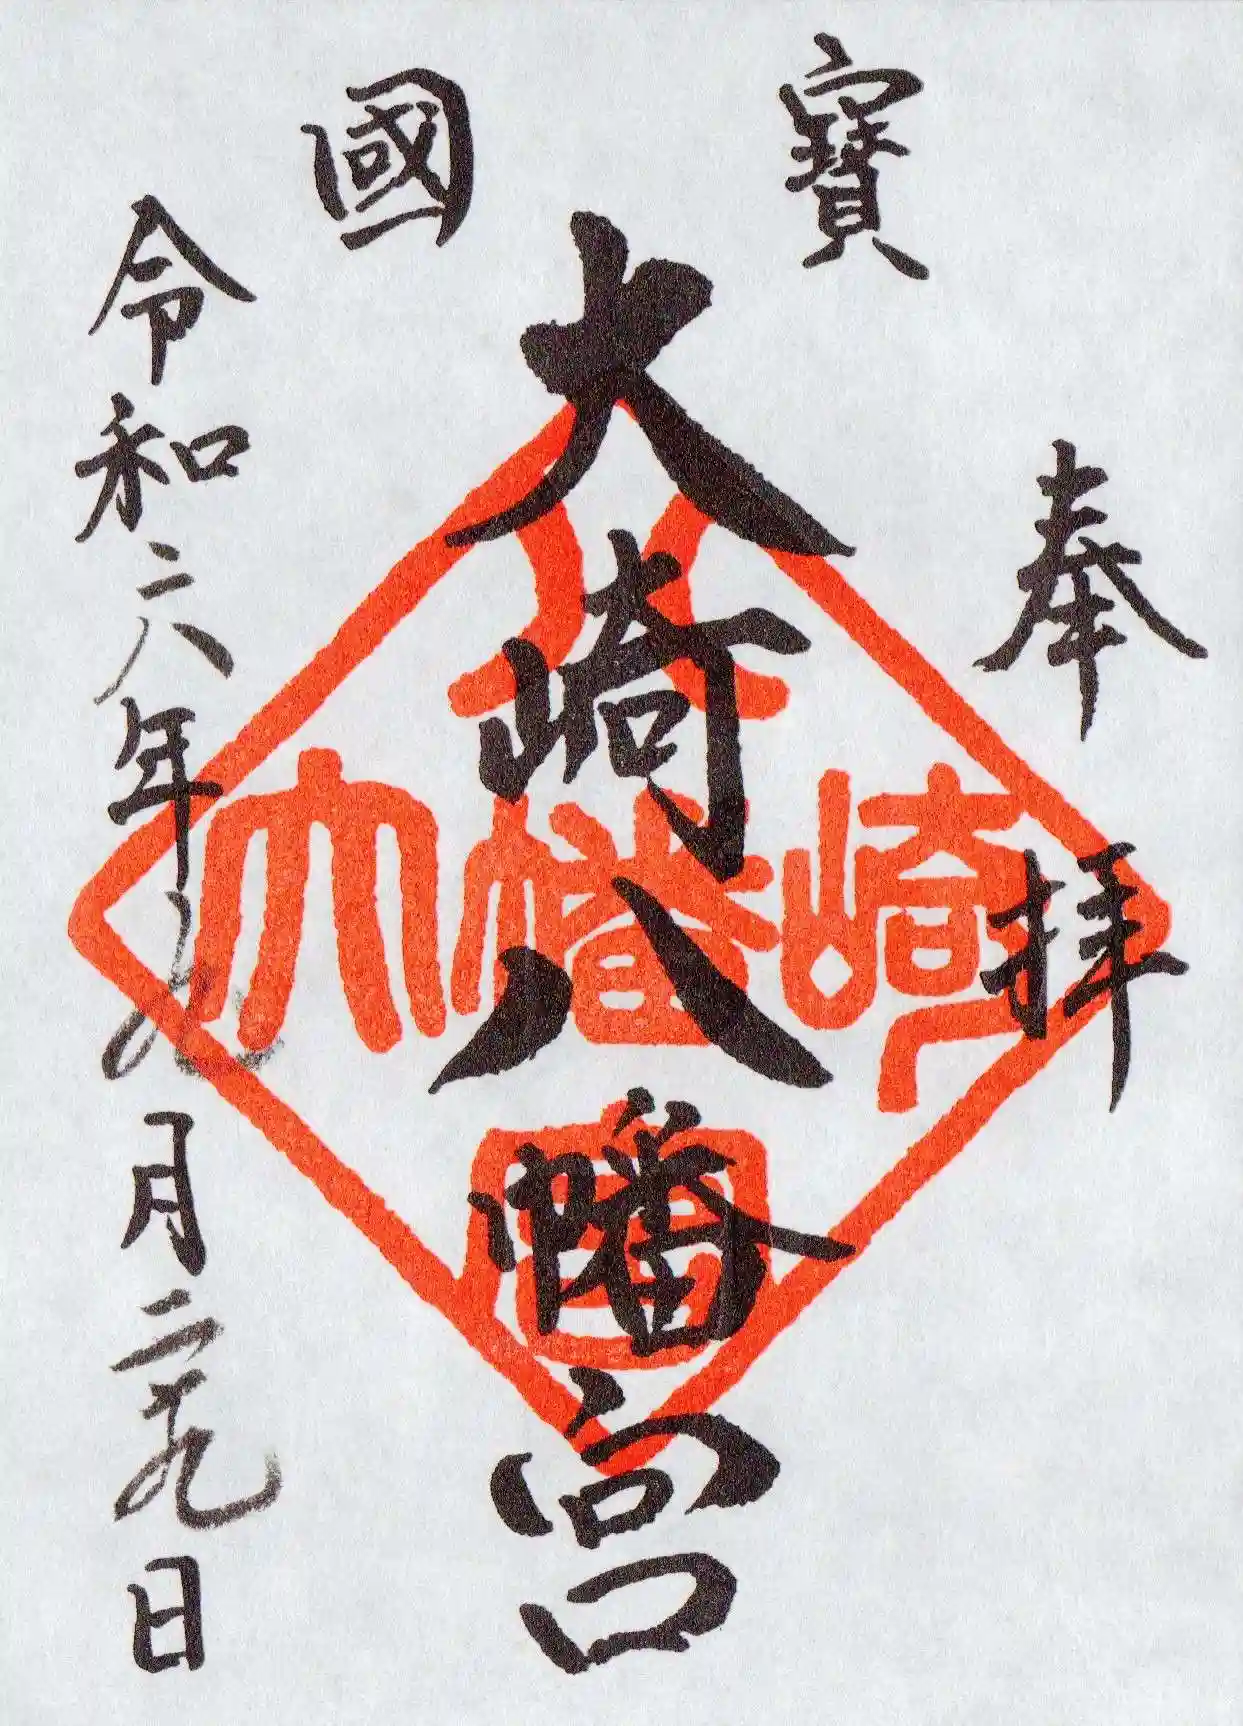 奉拝
寶
國
大崎八幡宮
令和六年九月二十九日
八
崎幡大
宮